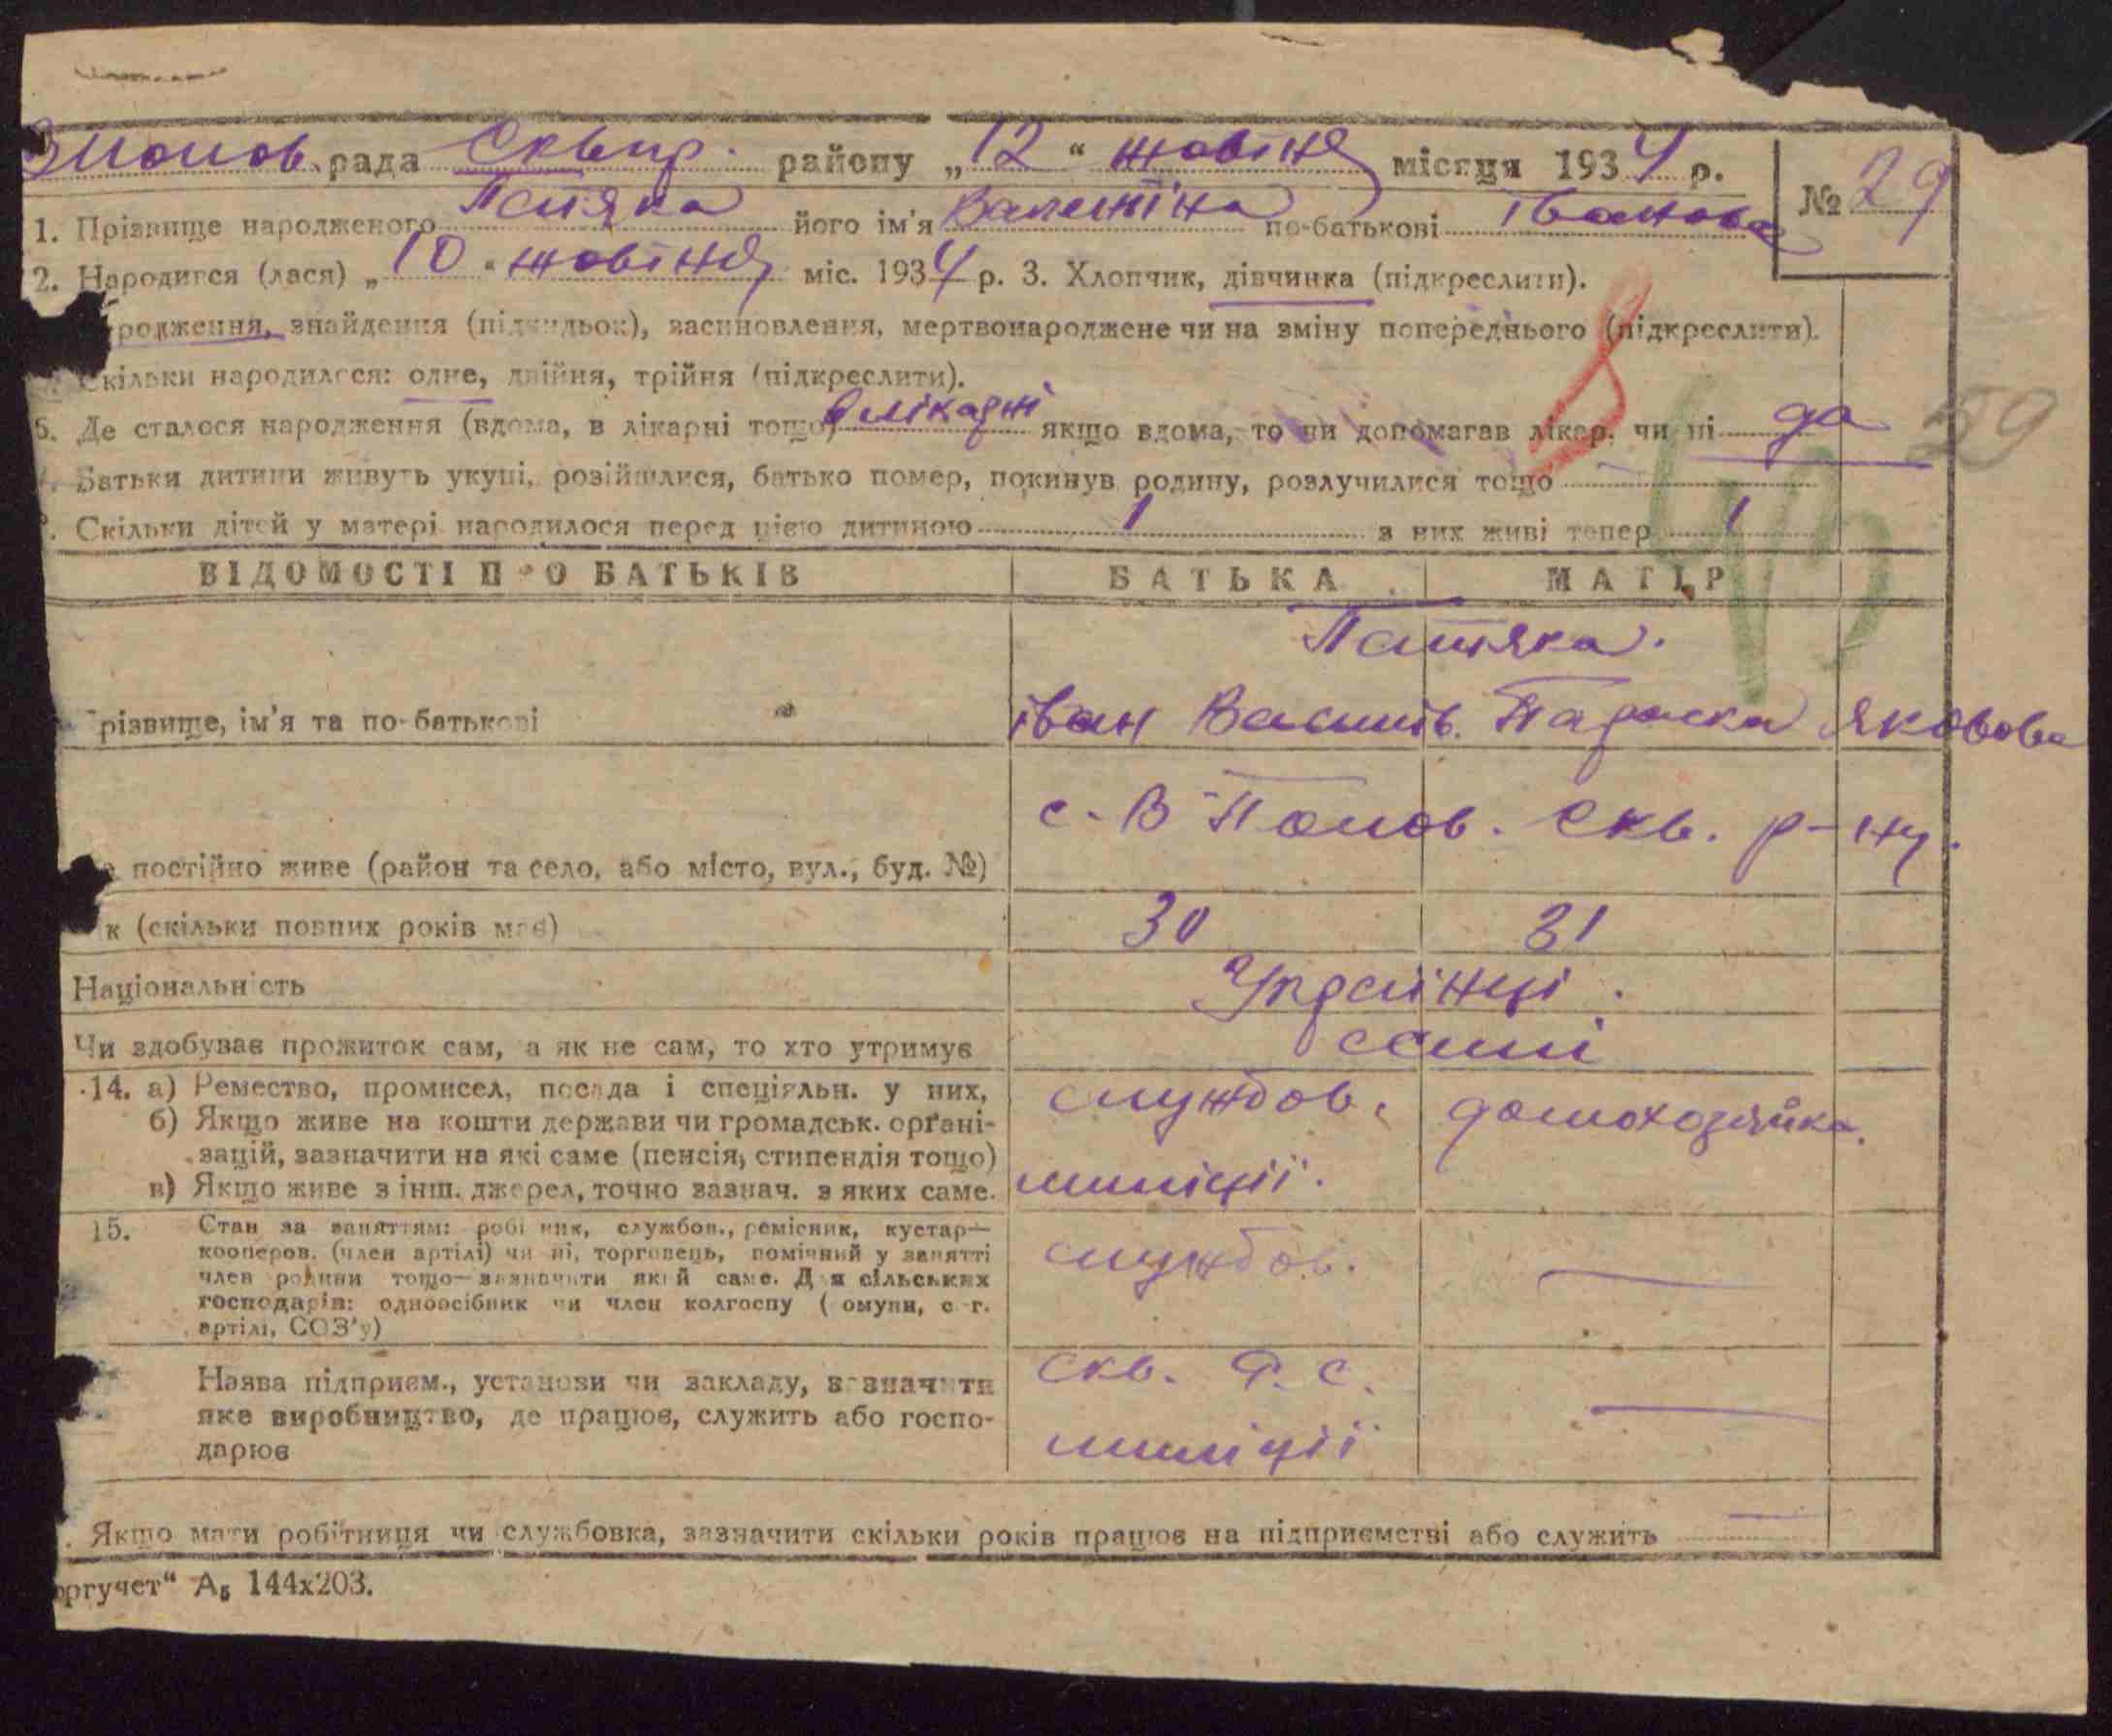 рада Сквир. району „12“ жовтня місяця 1934 р. № 29
1. Прізвище народженого його ім'я Валентіна по-батькові Іванова
2. Народився (лася) „10“ жовтня міс. 1934 р. 3. Хлопчик, дівчинка (підкреслити).
родження, знайдення (підкидьок), засиновлення, мертвонароджене чи на зміну попереднього (підкреслити).
Скільки народилося: одне, двійня, трійня (підкреслити).
6. Де сталося народження (вдома, в лікарні тощо) в лікарні якщо вдома, то чи допомагав лікар, чи ні да
59
Батьки дитини живуть укупі, розійшлися, батько помер, покинув родину, розлучилися тощо
Скільки дітей у матері народилося перед цією дитиною 1 з них живі тепер 1
ВІДОМОСТІ ПРО БАТЬКІВ БАТЬКА МАТІР
різвище, ім'я та по-батькові Іван Василів. Параска Яковова
с. В Попов. Скв. р-ну.
постійно живе (район та село, або місто, вул., буд. №)
к (скільки повних років має) 30 31
Національність Українці.
Чи здобуває прожиток сам, а як не сам, то хто утримує самі
14. а) Ремество, промисел, посада і спеціяльн. у них, службов. домохозяйка.
б) Якщо живе на кошти держави чи громадськ. орґані-
зацій, зазначити на які саме (пенсія, стипендія тощо)
в) Якщо живе з інш. джерел, точно зазнач. з яких саме. міліції.
15. Стан за заняттям: робітник, службов., ремісник, кустар—
кооперов. (член артілі) чи ні, торговець, помічний у занятті службов.
член родини тощо—зазначити який саме. Для сільських
господарів: одноосібник чи член колгоспу (комуни, с.-г.
артілі, СОЗ'у)
Назва підприєм., установи чи закладу, зазначити Скв. Р. С.
яке виробництво, де працює, служить або госпо- міліції
дарює
Якщо мати робітниця чи службовка, зазначити скільки років працює на підприємстві або служить
оргучет“ А₅ 144х203.